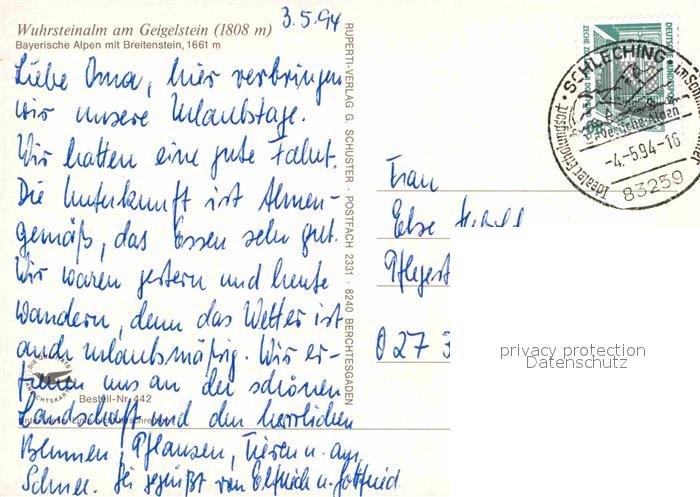 3.5.94
Wuhrsteinalm am Geigelstein (1808 m)
Bayerische Alpen mit Breitenstein, 1661 m
Liebe Oma, hier verbringen
wir unsere Urlaubstage.
Wir hatten eine gute Fahrt.
Die Unterkunft ist Almen-
gemäß, das Essen sehr gut.
Wir waren gestern und heute
wandern, denn das Wetter ist
auch urlaubsmäßig. Wir er-
freuen uns an der schönen
Bestell-Nr. 442
Landschaft und den herrlichen
Blumen, Pflanzen, Tieren u. am
Schnee. Sei gegrüßt von Elfriede u. Gottfried
RUPERTI-VERLAG G. SCHUSTER · POSTFACH 2331 · 8240 BERCHTESGADEN
DEUTSCHE BUNDESPOST
SCHLECHING
-4.-5.94-16
83259
Idealer Erholungsort
Frau
Else
Pflegest
027 3
privacy protection
Datenschutz